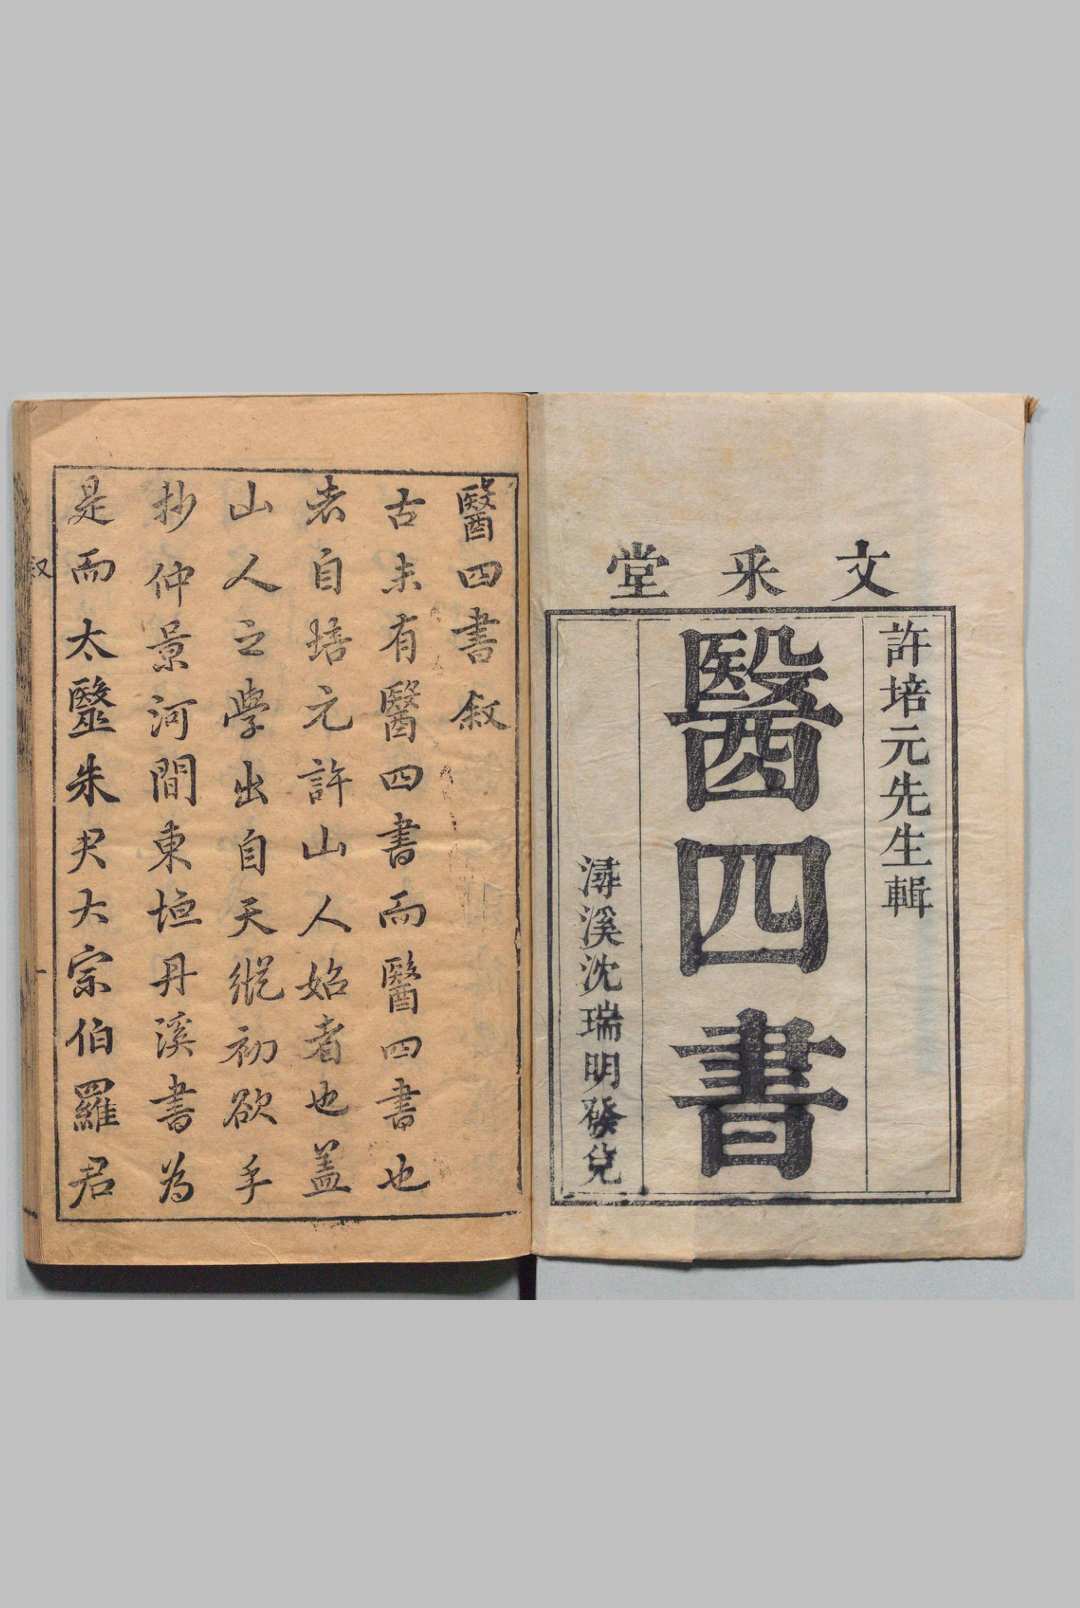 文采堂
許培元先生輯
醫四書
潯溪沈瑞明發兌
醫四書敘
古未有醫四書而醫四書也
者自培元許山人始者也蓋
山人之學出自天縱初欲手
抄仲景河間東垣丹溪書為
是而太毉朱尹大宗伯羅君